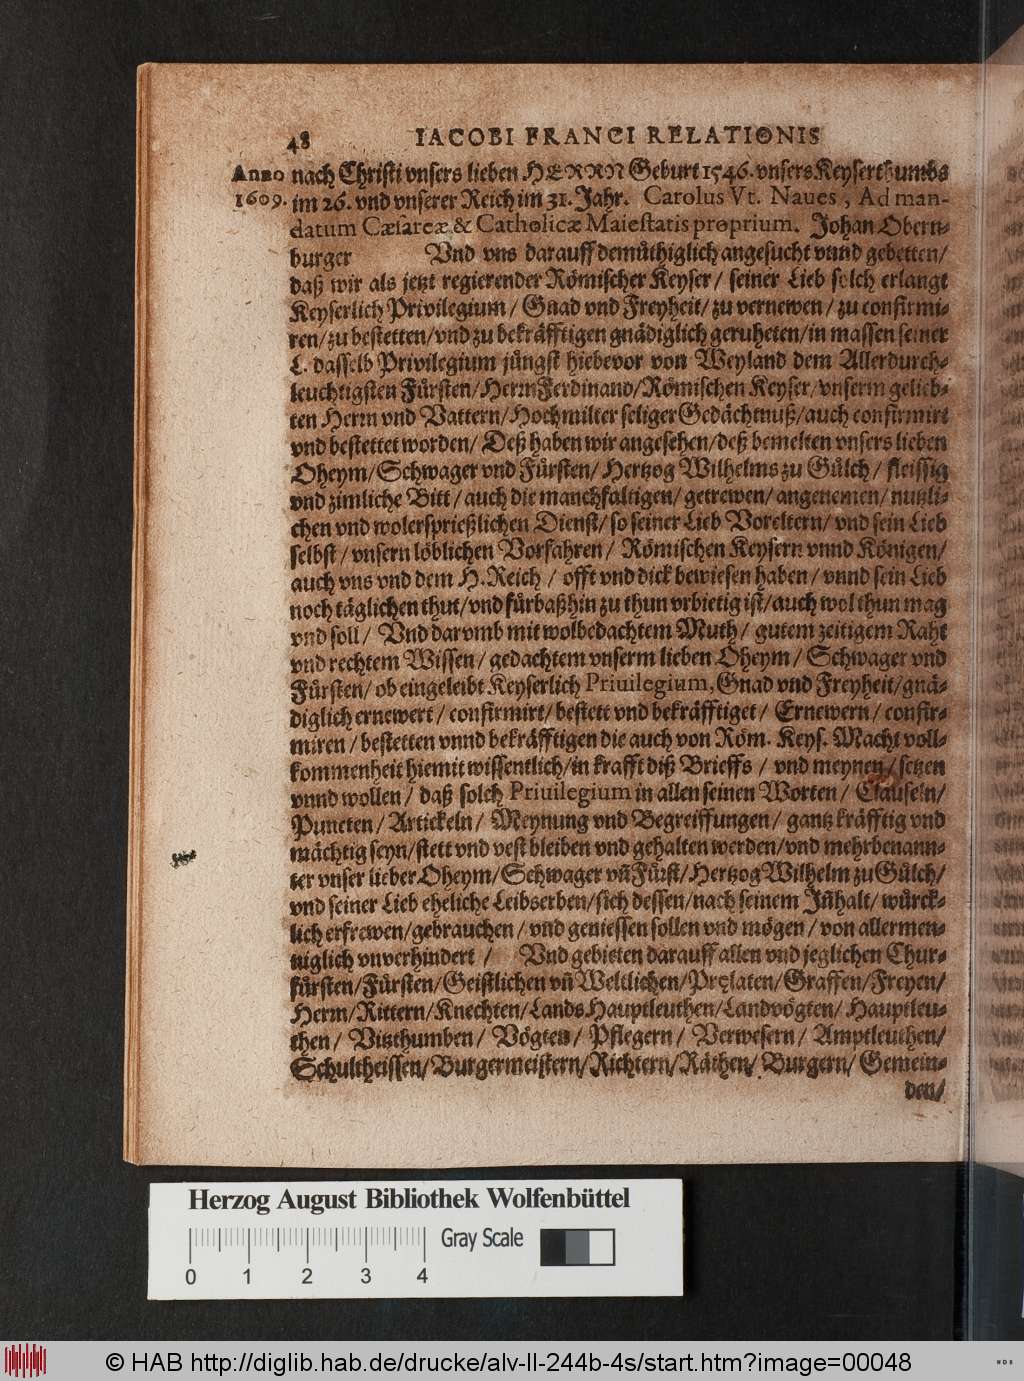 48 IACOBI FRANCI RELATIONIS
Anno 1609.
nach Christi vnsers lieben HERRN Geburt 1546. vnsers Keyserthumbs
im 26. vnd vnserer Reich im 31. Jahr. Carolus Vt. Naues, Ad man-
datum Cæsareæ & Catholicæ Maiestatis proprium. Johan Obern-
burger Vnd vns darauff demüthiglich angesucht vnnd gebetten/
daß wir als jetzt regierender Römischer Keyser/ seiner Lieb solch erlangt
Keyserlich Privilegium/ Gnad vnd Freyheit/ zu vernewen/ zu confirmi-
ren/ zu bestetten/ vnd zu bekräfftigen gnädiglich geruheten/ in massen seiner
L. dasselb Privilegium jüngst hiebevor von Weyland dem Allerdurch-
leuchtigsten Fürsten/ Herrn Ferdinand/ Römischen Keyser/ vnserm gelieb-
ten Herrn vnd Vattern/ Hochmilter seliger Gedächtnuß/ auch confirmirt
vnd bestettet worden/ Deß haben wir angesehen/ deß bemelten vnsers lieben
Oheym/ Schwager vnd Fürsten/ Hertzog Wilhelms zu Gülch/ fleissig
vnd zimliche Bitt/ auch die manchfaltigen/ getrewen/ angenemen/ nutzli-
chen vnd wolersprießlichen Dienst/ so seiner Lieb Voreltern/ vnd sein Lieb
selbst/ vnsern löblichen Vorfahren/ Römischen Keysern vnnd Königen/
auch vns vnd dem H. Reich/ offt vnd dick bewiesen haben/ vnnd sein Lieb
noch täglichen thut/ vnd fürbaßhin zu thun vrbietig ist/ auch wol thun mag
vnd soll/ Vnd darvmb mit wolbedachtem Muth/ gutem zeitigem Raht
vnd rechtem Wissen/ gedachtem vnserm lieben Oheym/ Schwager vnd
Fürsten/ ob eingeleibt Keyserlich Priuilegium, Gnad vnd Freyheit/ gnä-
diglich ernewert/ confirmirt/ bestett vnd bekräfftiget/ Ernewern/ confir-
miren/ bestetten vnnd bekräfftigen die auch von Röm. Keys. Macht voll-
kommenheit hiemit wissentlich/ in krafft diß Brieffs/ vnd meynen/ setzen
vnnd wollen/ daß solch Priuilegium in allen seinen Worten/ Clauseln/
Puncten/ Artickeln/ Meynung vnd Begreiffungen/ gantz kräfftig vnd
mächtig seyn/ stett vnd vest bleiben vnd gehalten werden/ vnd mehrbenann-
ter vnser lieber Oheym/ Schwager vñ Fürst/ Hertzog Wilhelm zu Gülch/
vnd seiner Lieb eheliche Leibserben/ sich dessen/ nach seinem Jñhalt/ würck-
lich erfrewen/ gebrauchen/ vnd geniessen sollen vnd mögen/ von allermen-
niglich vnverhindert/ Vnd gebieten darauff allen vnd jeglichen Chur-
fürsten/ Fürsten/ Geistlichen vñ Weltlichen/ Pręlaten/ Graffen/ Freyen/
Herrn/ Rittern/ Knechten/ Lands Hauptleuthen/ Landvögten/ Hauptleu-
then/ Vitzthumben/ Vögten/ Pflegern/ Verwesern/ Amptleuthen/
Schultheissen/ Burgermeistern/ Richtern/ Räthen/ Burgern/ Gemein-
den/
Herzog August Bibliothek Wolfenbüttel
0 1 2 3 4 Gray Scale
© HAB http://diglib.hab.de/drucke/alv-ll-244b-4s/start.htm?image=00048